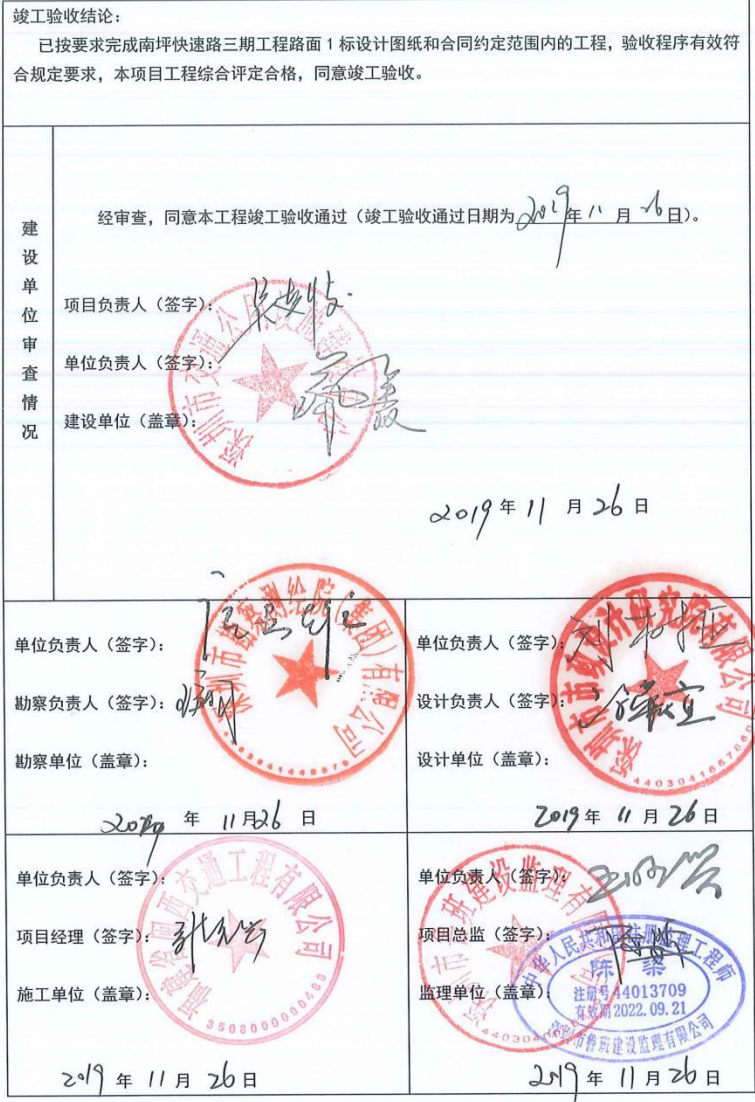 竣工验收结论:
已按要求完成南坪快速路三期工程路面1标设计图纸和合同约定范围内的工程，验收程序有效符
合规定要求，本项目工程综合评定合格，同意竣工验收。
建设单位审查情况
经审查，同意本工程竣工验收通过（竣工验收通过日期为2019年11月26日）。
项目负责人（签字）:
单位负责人（签字）:
建设单位（盖章）:
深圳市交通公用设施建设
2019年11月26日
单位负责人（签字）:
勘察负责人（签字）:
勘察单位（盖章）:
深圳市勘察测绘院（集团）有限公司
2019年11月26日
单位负责人（签字）:
设计负责人（签字）:
设计单位（盖章）:
研究院有限公司
2019年11月26日
单位负责人（签字）:
项目经理（签字）:
施工单位（盖章）:
福建省闽西交通工程有限公司
2019年11月26日
单位负责人（签字）:
项目总监（签字）:
监理单位（盖章）:
深圳市鲁班建设监理有限公司
中华人民共和国注册监理工程师
陈梁
注册号44013709
有效期2022.09.21
深圳市鲁班建设监理有限公司
2019年11月26日